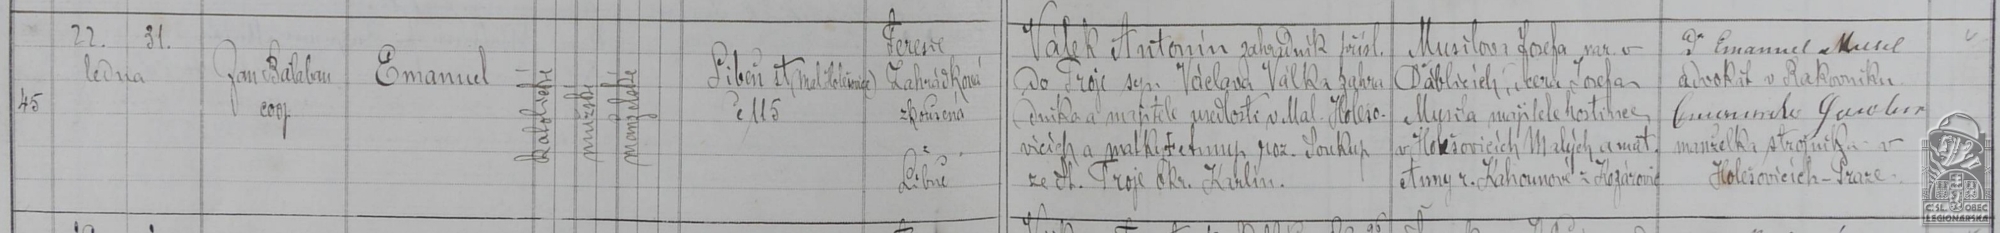 45
22. 31.
ledna
Jan Balaban
coop.
Emanuel
katolické
mužské
manželské
Libeň II (mal. Holešovice)
č 115
Terezie
Zahrádková
zkoušená
z
Libně
Válek Antonín zahradník přísl.
do Troje syn Václava Válka zahra
dníka a majitele usedlosti v Mal. Holešo-
vicích a matky Anny roz. Soukup
ze M. Troje okr. Karlín.
Musilova Josefa nar. v
Ďáblicích, dcera Josefa
Musila majitele hostince
v Holešovicích Malých a mat.
Anny r. Kahounové z Kozárovic
Dr Emanuel Musil
advokát v Rakovníku
manželka strojníka v
Holešovicích-Praze.
ČS. OBEC
LEGIONÁŘSKÁ